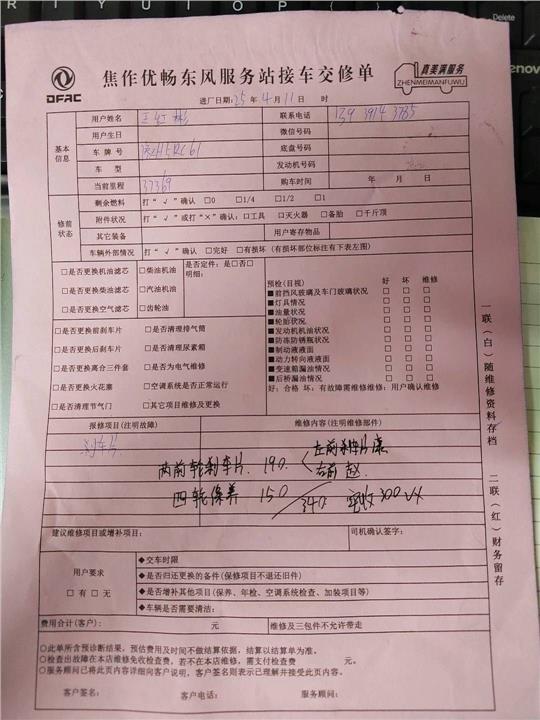 DFAC
焦作优畅东风服务站接车交修单
真美满服务
ZHENMEIMANFUWU
进厂日期:25年4月11日 时
基本信息
用户姓名 王红彬 联系电话
用户生日 微信号码
车牌号 底盘号码
车型 发动机号码
当前里程 37369 购车时间 年 月 日
修前状态
剩余燃料 打“√”确认 □0 □1/4 □1/2 □1
附件状况 打“√”或打“×”确认:□工具 □灭火器 □备胎 □千斤顶
其它装备 用户寄存物品
车辆外部情况 打“√”确认 □完好 □有损坏 (有损坏部位标注有下表左图)
□是否更换机油滤芯 □柴油机油 是否定件:是□否□
明细:
□是否更换柴油滤芯 □汽油机油
□是否更换空气滤芯 □齿轮油
预检(目视) 好 坏 维修
■前挡风玻璃及车门玻璃状况 □ □ □
■灯具情况 □ □ □
■油量状况 □ □ □
■轮胎状况 □ □ □
■发动机机油状况 □ □ □
■防冻防锈瓶状况 □ □ □
■制动液液面 □ □ □
■动力转向液液面 □ □ □
■变速箱漏油情况 □ □ □
■后桥漏油情况 □ □ □
好:合格 坏:有故障需维修维修:用户确认维修
□是否更换前刹车片 □是否清理排气筒
□是否更换后刹车片 □是否清理尿素箱
□是否更换离合三件套 □是否为电气维修
□是否更换火花塞 □空调系统是否正常运行
□是否清理节气门 □其它项目维修及更换
报修项目(注明故障) 维修内容(注明维修部件)
刹车片
两前轮刹车片 190. 左前刹车片康
右前 赵.
四轮保养 150 /340 实收300
建议维修项目或增补项目: 司机确认签字:
用户要求
□有 □无
◆交车时限
◆是否归还更换的备件(保修项目不退还旧件)
◆是否增补其他项目(保养、年检、空调系统检查、加装项目等)
◆车辆是否需要清洁:
费用合计(客户): 元 维修及三包件不允许带走
○此单所含预诊断结果,预估费用及时间不做结算依据,结算以结算单为准。
○检查出故障在本店维修免收检查费,若不在本店维修,需支付检查费 元。
○服务顾问已将此页内容详细向客户说明,客户签名则表示已理解并接受此页内容。
客户签名: 客户电话: 服务顾问:
一联(白)随维修资料存档
二联(红)财务留存